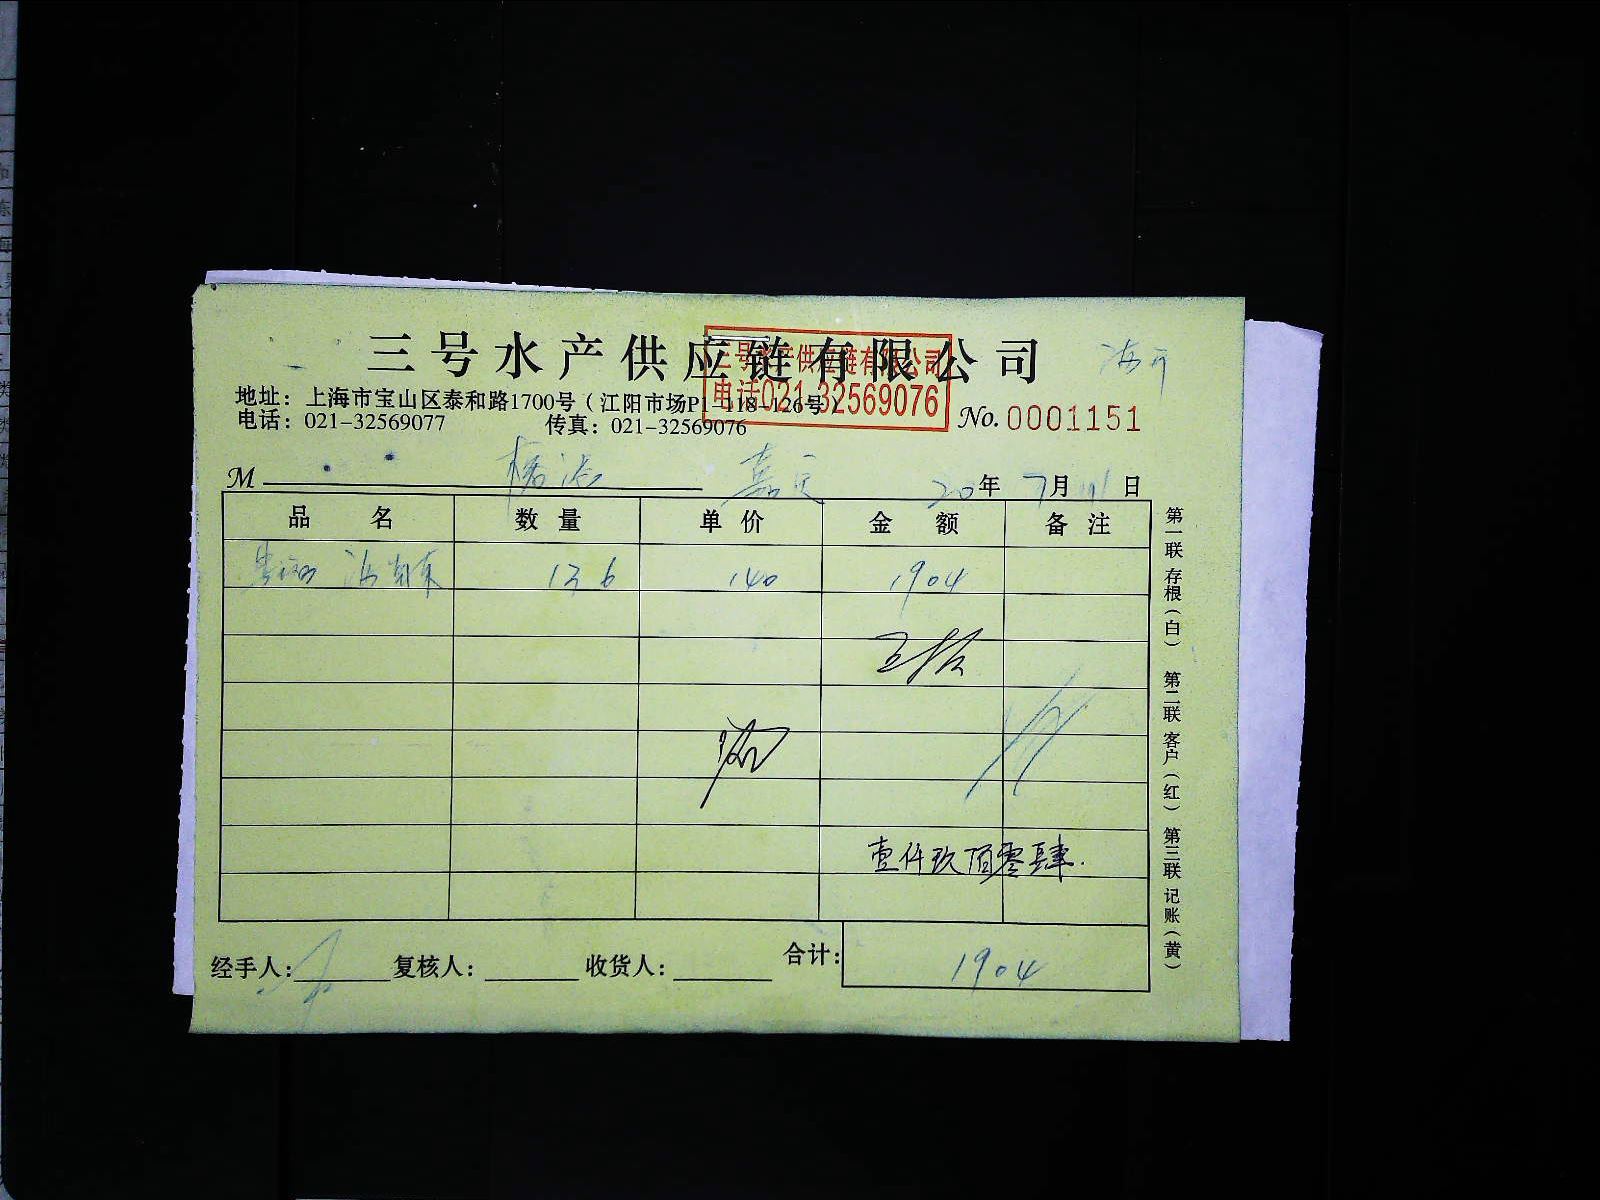 三号水产供应链有限公司
三号水产供应链有限公司
电话021-32569076
地址：上海市宝山区泰和路1700号（江阳市场P1-118-126号）
电话：021-32569077 传真：021-32569076
No. 0001151
M 嘉定 20年 7月 日
品名 数量 单价 金额 备注
136 140 1904
壹仟玖佰零肆.
经手人： 复核人： 收货人： 合计： 1904
第一联 存根（白） 第二联 客户（红） 第三联 记账（黄）